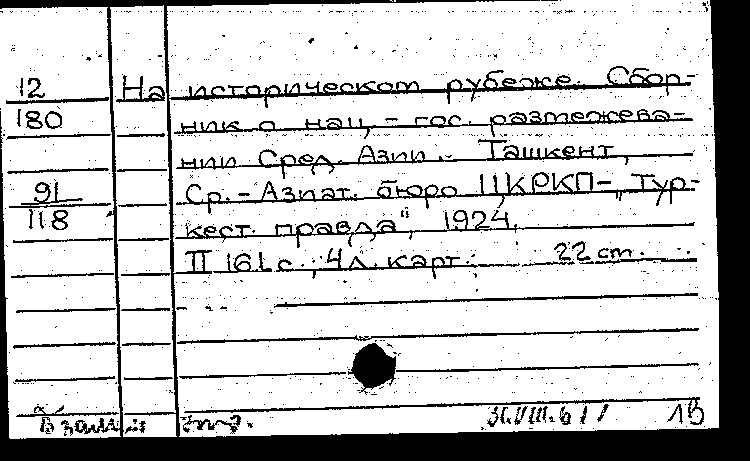 12 На историческом рубеже. Сбор-
180 ник о нац.-гос. размежева-
нии Сред. Азии.- Ташкент,
91 Ср.-Азиат. бюро ЦКРКП-„Тур-
118 кест. правда", 1924.
II 161 с., 4 л. карт. 22 см.